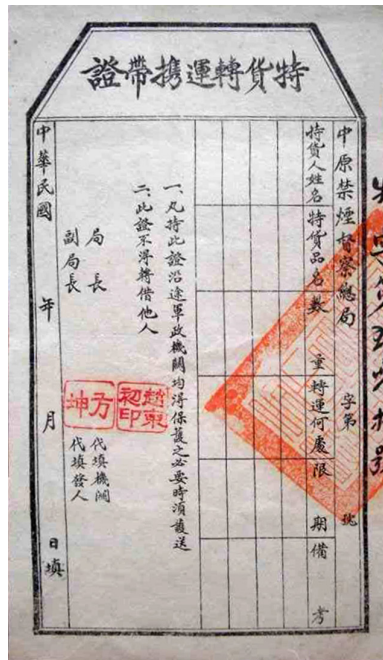 特貨轉運携帶證
中原禁煙督察總局 字第 號
持貨人姓名 特貨品名 數量 轉運何處 限期 備考
一、凡持此證沿途軍政機關均得保護之必要時須護送
二、此證不得轉借他人
局長 代填機關
副局長 代填發人
趙東初印
方坤
中華民國 年 月 日填